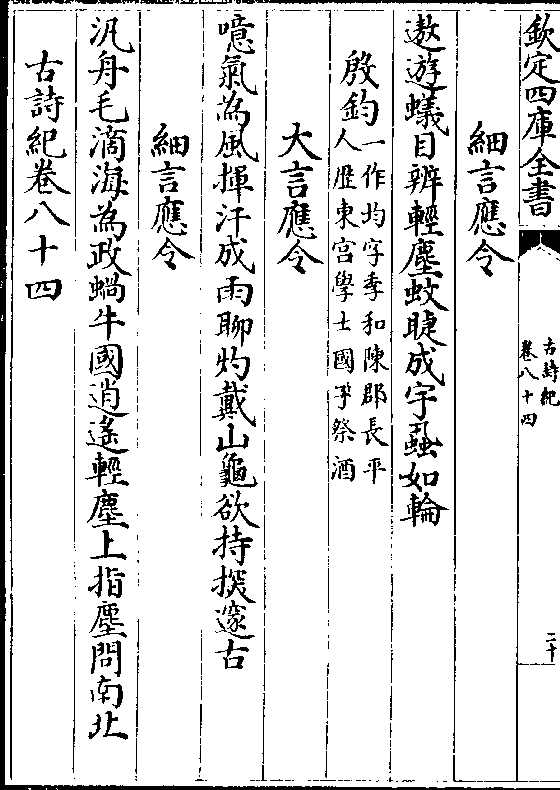 欽定四庫全書
古詩紀
卷八十四
二十
細言應令
遨遊蟻目辨輕塵蚊睫成宇蝨如輪
殷鈞
一作均字季和陳郡長平
人歴東宫學士國子祭酒
大言應令
噫氣為風揮汗成雨聊灼戴山龜欲持探邃古
細言應令
汎舟毛滴海為政蝸牛國逍遙輕塵上指塵問南北
古詩紀卷八十四